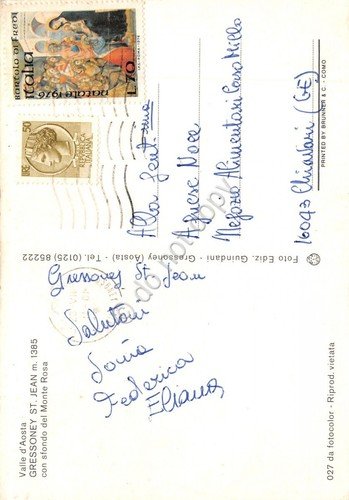 Valle d'Aosta
GRESSONEY ST. JEAN m. 1385
con sfondo del Monte Rosa
Gressoney St. Jean
Saluti
Sonia
Federica
Eliana
027 da fotocolor - Riprod. vietata
Foto Ediz. Guindani - Gressoney (Aosta) - Tel. (0125) 85222
PRINTED BY BRUNNER & C. - COMO
BARTOLO DI FREDI
Italia
natale 1976
L.70
LIRE 50
Alla Gent.ma
Agnese Noce
Negozio Alimentari Corso Millo
16043 Chiavari (GE)